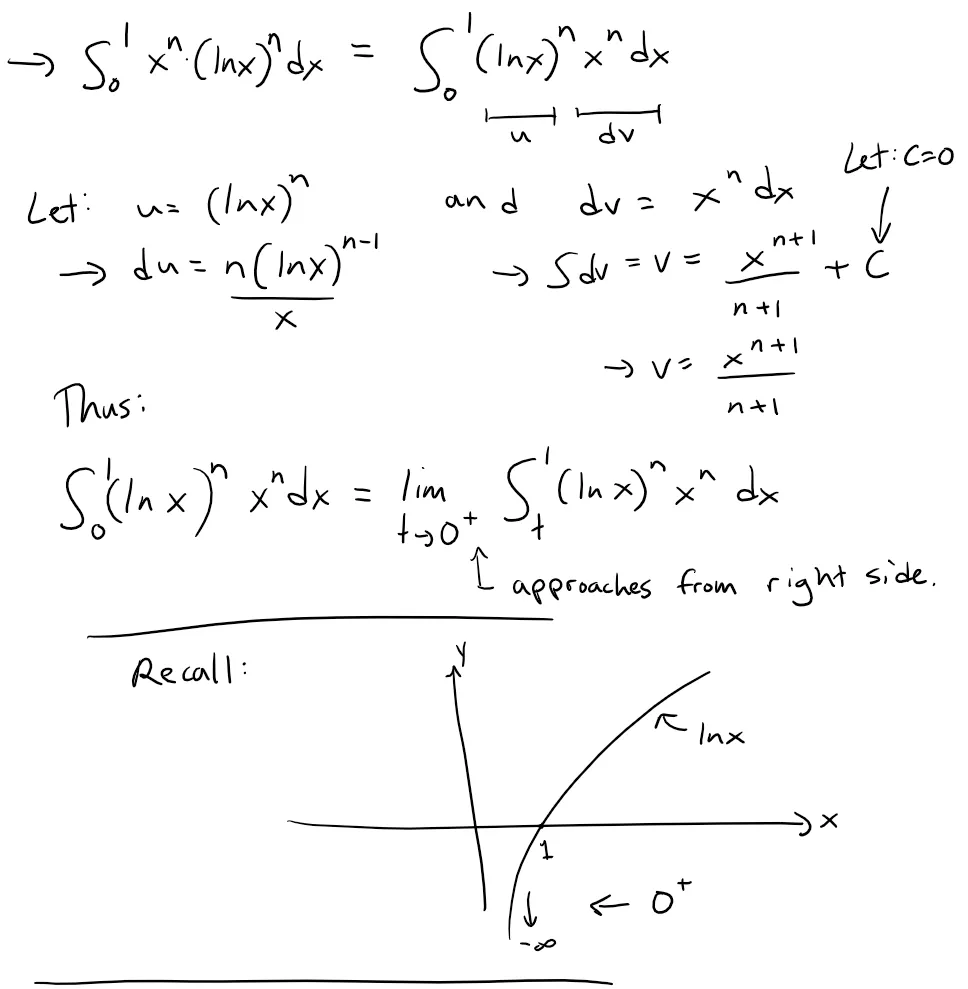 → ∫₀¹ xⁿ·(lnx)ⁿdx = ∫₀¹ (lnx)ⁿ xⁿ dx
u dv
Let: C=0
Let: u= (lnx)ⁿ and dv = xⁿ dx
→ du = n(lnx)ⁿ⁻¹/x → ∫dv = v = xⁿ⁺¹/n+1 + C
→ v = xⁿ⁺¹/n+1
Thus:
∫₀¹(ln x)ⁿ xⁿdx = lim t→0⁺ ∫ₜ¹ (ln x)ⁿ xⁿ dx
approaches from right side.
Recall:
y
← lnx
x
1
↓ ← 0⁺
-∞